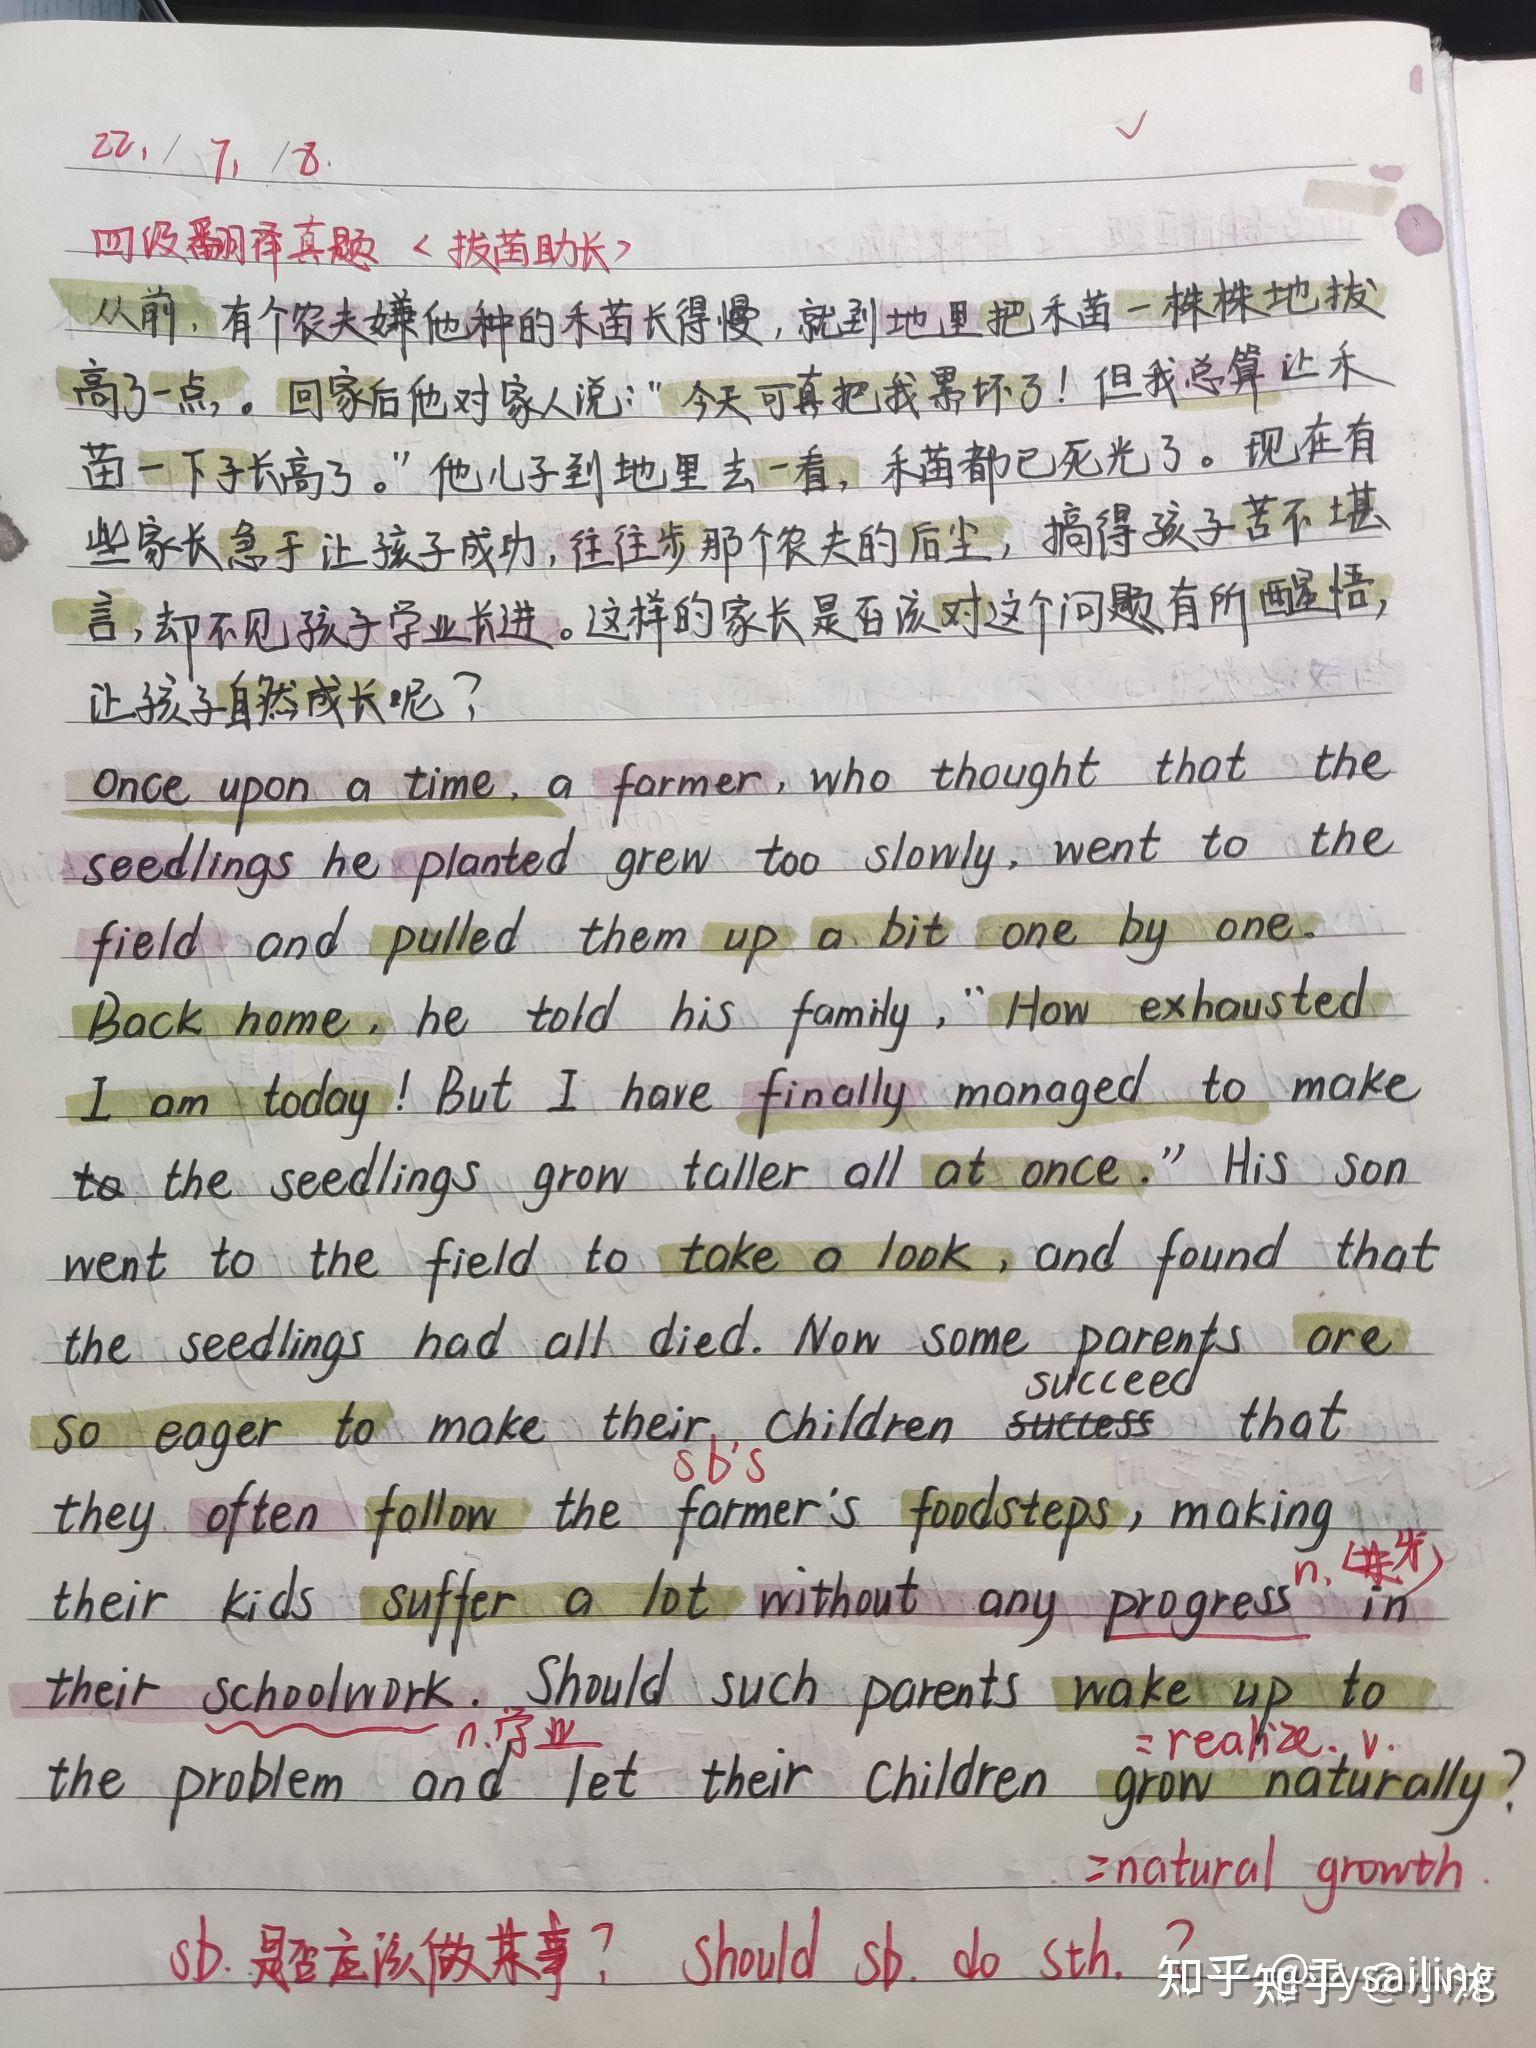 22, / 7, /8.
四级翻译真题 <拔苗助长>
从前, 有个农夫嫌他种的禾苗长得慢, 就到地里把禾苗一株株地拔
高了一点,。回家后他对家人说:"今天可真把我累坏了! 但我总算让禾
苗一下子长高了。"他儿子到地里去一看, 禾苗都已死光了。现在有
些家长急于让孩子成功, 往往步那个农夫的后尘, 搞得孩子苦不堪
言, 却不见孩子学业长进。这样的家长是否该对这个问题有所醒悟,
让孩子自然成长呢?
Once upon a time, a farmer, who thought that the
seedlings he planted grew too slowly, went to the
field and pulled them up a bit one by one.
Back home, he told his family, "How exhausted
I am today! But I have finally managed to make
to the seedlings grow taller all at once." His son
went to the field to take a look, and found that
the seedlings had all died. Now some parents are
succeed
so eager to make their children success that
sb's
they often follow the farmer's foodsteps, making
n.
their kids suffer a lot without any progress in
their schoolwork. Should such parents wake up to
n.学业 =realize. v.
the problem and let their children grow naturally?
=natural growth.
sb. 是否应该做某事? Should sb. do sth. ?
知乎 @Tysailing